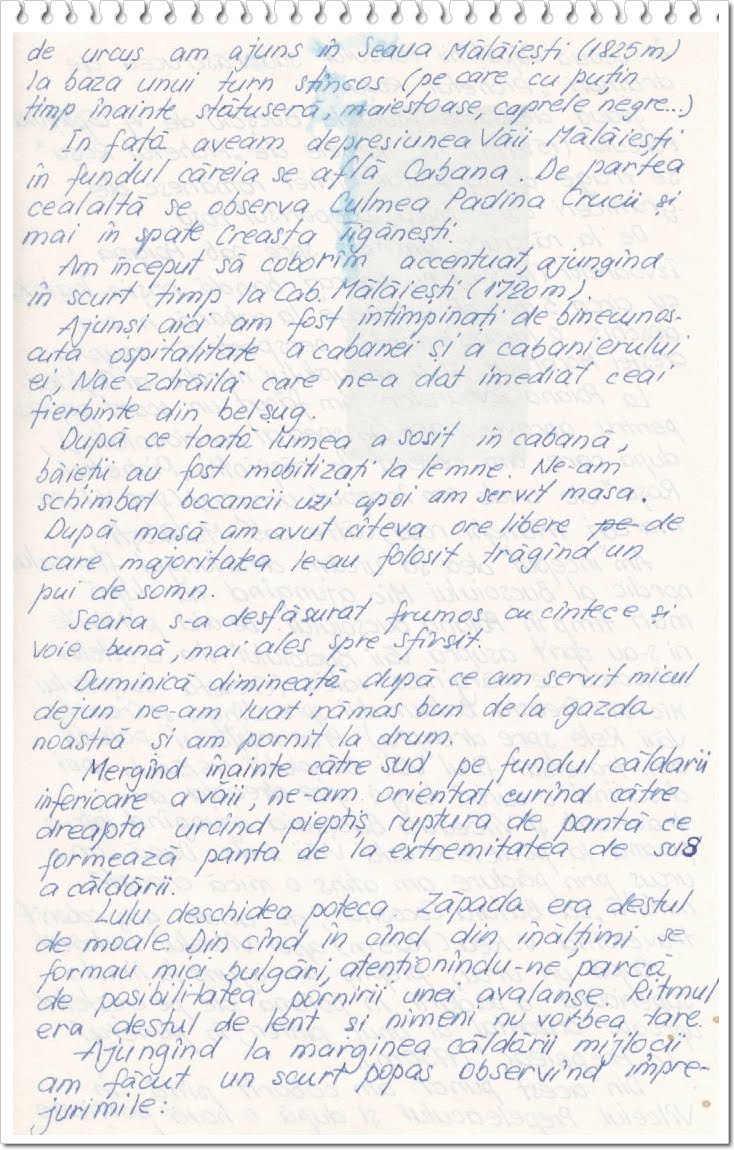 de urcuș am ajuns în Șeaua Mălăiești (1825m)
la baza unui turn stîncos (pe care cu puțin
timp înainte stătuseră, maiestoase, caprele negre...)
În față aveam depresiunea Văii Mălăiești
în fundul căreia se află Cabana. De partea
cealaltă se observa Culmea Padina Crucii și
mai în spate Creasta Țigănești.
Am început să coborîm accentuat, ajungînd
în scurt timp la Cab. Mălăiești (1720m)
Ajunși aici am fost întîmpinați de binecunos-
cuta ospitalitate a cabanei și a cabanierului
ei Nae Zdrăilă care ne-a dat imediat ceai
fierbinte din belșug.
După ce toată lumea a sosit în cabană,
băieții au fost mobilizați la lemne. Ne-am
schimbat bocancii uzi apoi am servit masa.
După masă am avut cîteva ore libere pe de
care majoritatea le-au folosit trăgînd un
pui de somn.
Seara s-a desfășurat frumos cu cîntece și
voie bună, mai ales spre sfîrșit
Duminică dimineață după ce am servit micul
dejun ne-am luat rămas bun de la gazda
noastră și am pornit la drum.
Mergînd înainte către sud pe fundul căldării
inferioare a văii, ne-am orientat curînd către
dreapta urcînd pieptiș ruptura de pantă ce
formează panta de la extremitatea de sud
a căldării.
Lulu deschidea poteca. Zăpada era destul
de moale. Din cînd în cînd din înălțimi se
formau mici bulgări, atenționîndu-ne parcă
de posibilitatea pornirii unei avalanșe. Ritmul
era destul de lent și nimeni nu vorbea tare.
Ajungînd la marginea căldării mijlocii
am făcut un scurt popas observînd împre-
jurimile: